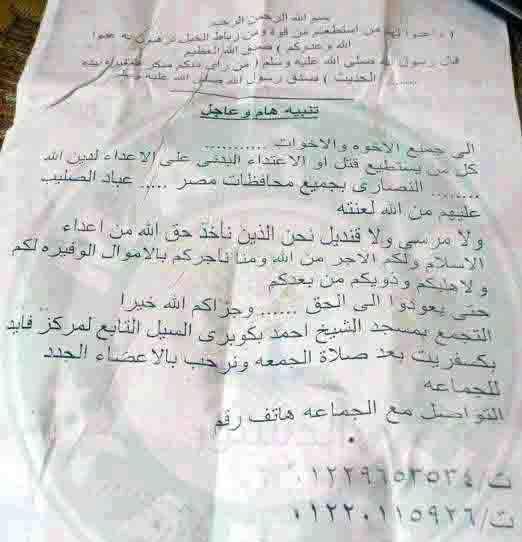 بسم الله الرحمن الرحيم
( واعدوا لهم من استطعتم من قوة ومن رباط الخيل ترهبون به عدوا
الله وعدوكم ) صدق الله العظيم
قال رسول الله صلى الله عليه وسلم ( من رأى منكم منكر فليغيره بيده
........ الحديث ) صدق رسول الله صلى الله عليه وسلم
تنبيه هام وعاجل
الى جميع الاخوه والاخوات ..........
كل من يستطيع قتل او الاعتداء البدنى على الاعداء لدين الله
......... النصارى بجميع محافظات مصر ..... عباد الصليب
عليهم من الله لعنته
ولا مرسى ولا قنديل نحن الذين نأخذ حق الله من اعداء
الاسلام ولكم الاجر من الله ومنا نأجركم بالاموال الوفيره لكم
ولاهلكم وذويكم من بعدكم
حتى يعودوا الى الحق ...... وجزاكم الله خيرا
التجمع بمسجد الشيخ احمد بكوبرى السيل التابع لمركز فايد
بكسفريت بعد صلاة الجمعه ونرحب بالاعضاء الجدد
للجماعه
التواصل مع الجماعه هاتف رقم
ت/٠١٢٢٩٦٥٣٥٣٤
ت/٠١٢٢٠١١٥٩٢٦